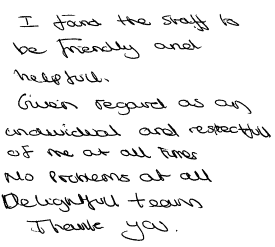 I found the staff to
be friendly and
helpfull.
Given regard as an
individual and respectfull
of me at all times
No Problems at all
Delightfull team
Thank you.